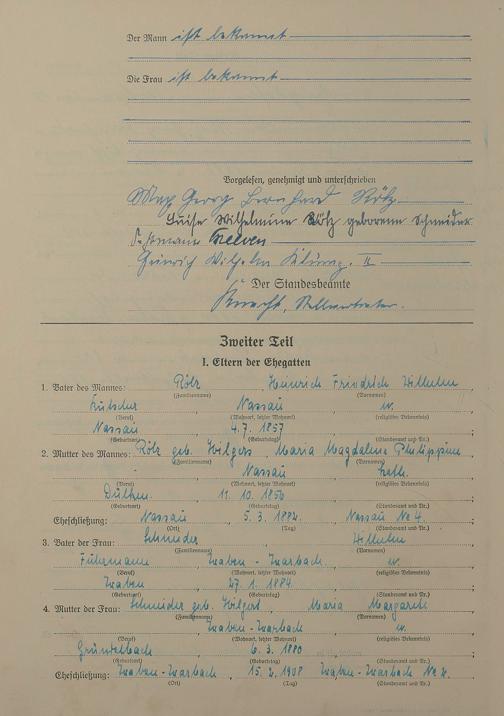 Der Mann ist bekannt
Die Frau ist bekannt
Vorgelesen, genehmigt und unterschrieben
Max Georg Bernhard Rölz
Luise Wilhelmine Rölz geborene Schneider
Heinrich Wilhelm II
Der Standesbeamte
Knecht, Stellvertreter.
Zweiter Teil
I. Eltern der Ehegatten
1. Vater des Mannes: Rölz, Heinrich Friedrich Wilhelm
(Familienname) (Vornamen)
Kutscher Nassau ev.
(Beruf) (Wohnort, letzter Wohnort) (religiöses Bekenntnis)
Nassau, 4.7.1857
(Geburtsort) (Geburtstag) (Standesamt und Nr.)
2. Mutter des Mannes: Rölz geb. Hilgers Maria Magdalena Philippine
(Familienname) (Vornamen)
Nassau, kath.
(Beruf) (Wohnort, letzter Wohnort) (religiöses Bekenntnis)
Dülken, 11.10.1856
(Geburtsort) (Geburtstag) (Standesamt und Nr.)
Eheschließung: Nassau, 5.3.1882. Nassau No 4.
(Ort) (Tag) (Standesamt und Nr.)
3. Vater der Frau: Schneider Wilhelm
(Familienname) (Vornamen)
Fuhrmann Traben-Trarbach ev.
(Beruf) (Wohnort, letzter Wohnort) (religiöses Bekenntnis)
Traben, 27.1.1884.
(Geburtsort) (Geburtstag) (Standesamt und Nr.)
4. Mutter der Frau: Schneider geb. Hilgert, Maria Margarete
(Familienname) (Vornamen)
Traben-Trarbach ev.
(Beruf) (Wohnort, letzter Wohnort) (religiöses Bekenntnis)
6.3.1880
(Geburtsort) (Geburtstag) (Standesamt und Nr.)
Eheschließung: Traben-Trarbach, 15.2.1908 Traben-Trarbach No
(Ort) (Tag) (Standesamt und Nr.)